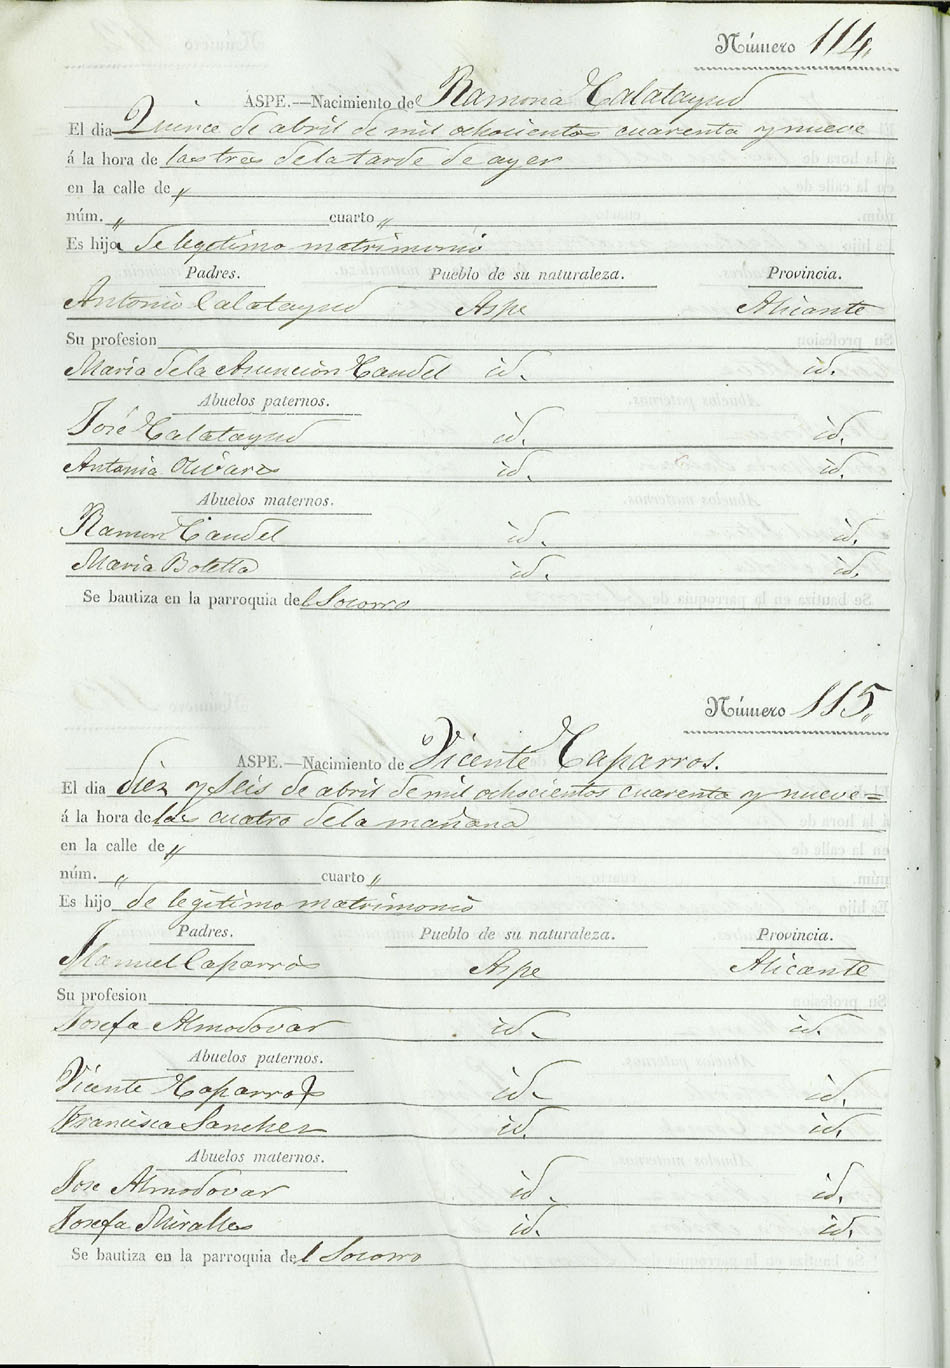 Número 114.
ASPE.—Nacimiento de Ramona Calatayud
El dia Quince de abril de mil ochocientos cuarenta y nueve
á la hora de las tres de la tarde de ayer
en la calle de "
núm. " cuarto "
Es hija de legitimo matrimonio
Padres. Pueblo de su naturaleza. Provincia.
Antonio Calatayud Aspe Alicante
Su profesion
Maria de la Asuncion Caudel id. id.
Abuelos paternos.
José Calatayud id. id.
Antonia Olivares id. id.
Abuelos maternos.
Ramon Caudel id. id.
Maria Botella id. id.
Se bautiza en la parroquia del Socorro
Número 115.
ASPE.—Nacimiento de Vicente Caparros.
El dia diez y seis de abril de mil ochocientos cuarenta y nueve=
á la hora de las cuatro de la mañana
en la calle de "
núm. " cuarto "
Es hijo de legitimo matrimonio
Padres. Pueblo de su naturaleza. Provincia.
Manuel Caparros Aspe Alicante
Su profesion
Josefa Almodovar id. id.
Abuelos paternos.
Vicente Caparros id. id.
Francisca Sanchez id. id.
Abuelos maternos.
Jose Almodovar id. id.
Josefa Miralles id. id.
Se bautiza en la parroquia del Socorro